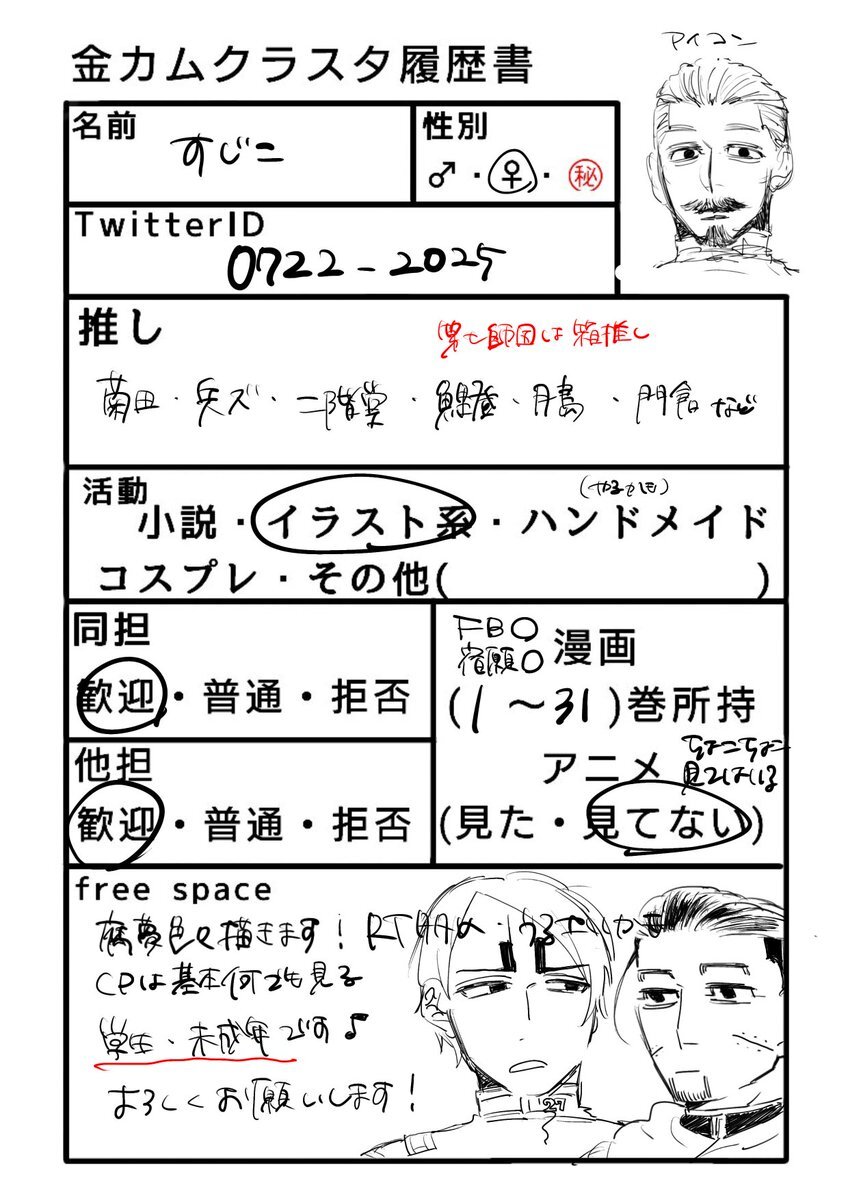 金カムクラスタ履歴書
アイコン
名前
すじこ
性別
♂・♀・㊙
TwitterID
0722_2025
推し
第七師団は箱推し
菊田・兵ズ・二階堂・鯉登・月島・門倉など
活動
(やるかも)
小説・イラスト系・ハンドメイド
コスプレ・その他( )
同担
歓迎・普通・拒否
他担
歓迎・普通・拒否
FB○
宿願○
漫画
(1～31)巻所持
アニメ
ちょこちょこ
見てはいる
(見た・見てない)
free space
腐夢色々描きます！RT多め・うるさいかも
CPは基本何でも見る
学生・未成年です♪
よろしくお願いします！
27